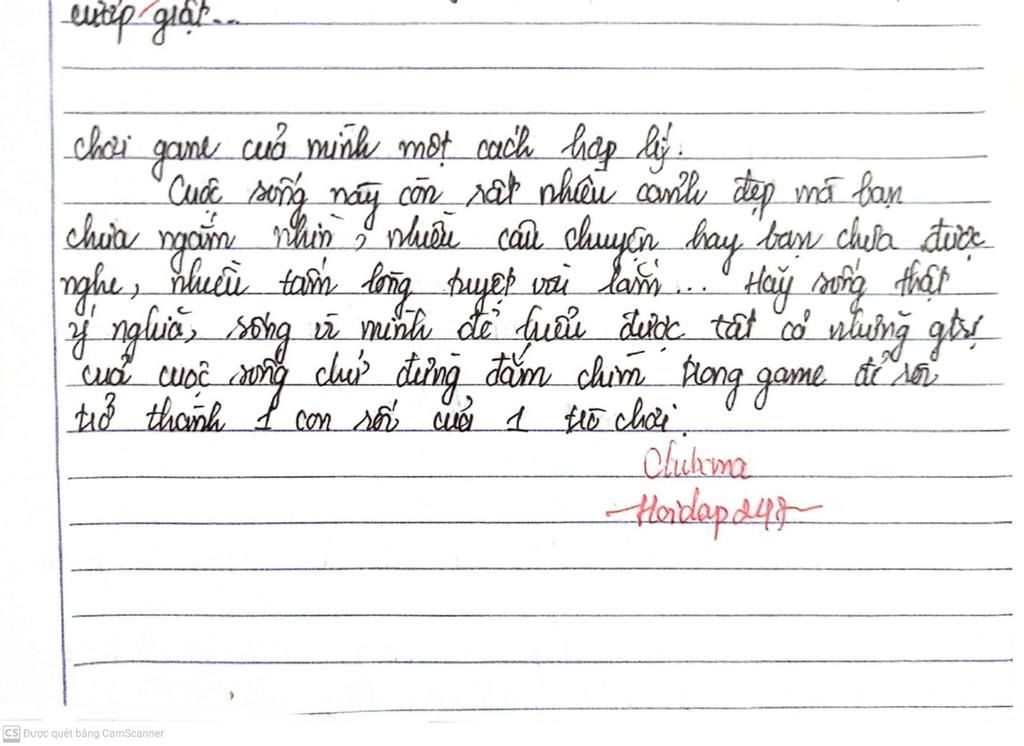 cướp giật...
chơi game của mình một cách hợp lý.
Cuộc sống này còn rất nhiều cảnh đẹp mà bạn
chưa ngắm nhìn, nhiều câu chuyện hay bạn chưa được
nghe, nhiều tấm lòng tuyệt vời lắm... Hãy sống thật
ý nghĩa, sống vì mình để hiểu được tất cả những gtrị
của cuộc sống chứ đừng đắm chìm trong game để rồi
trở thành 1 con rối của 1 trò chơi.
Hoidap247
CS Được quét bằng CamScanner